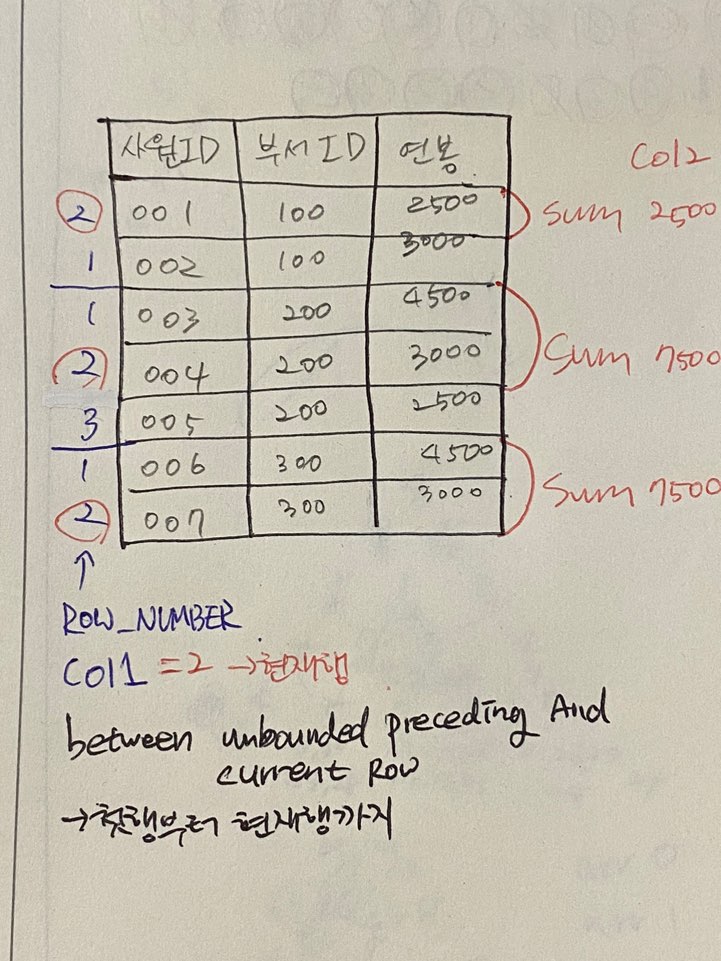 사원ID 부서ID 연봉 Col2
2 001 100 2500 Sum 2500
1 002 100 3000
1 003 200 4500
2 004 200 3000 Sum 7500
3 005 200 2500
1 006 300 4500
2 007 300 3000 Sum 7500
↑
ROW_NUMBER
Col1 =2 →현재행
between unbounded preceding And
current Row
→첫행부터 현재행까지